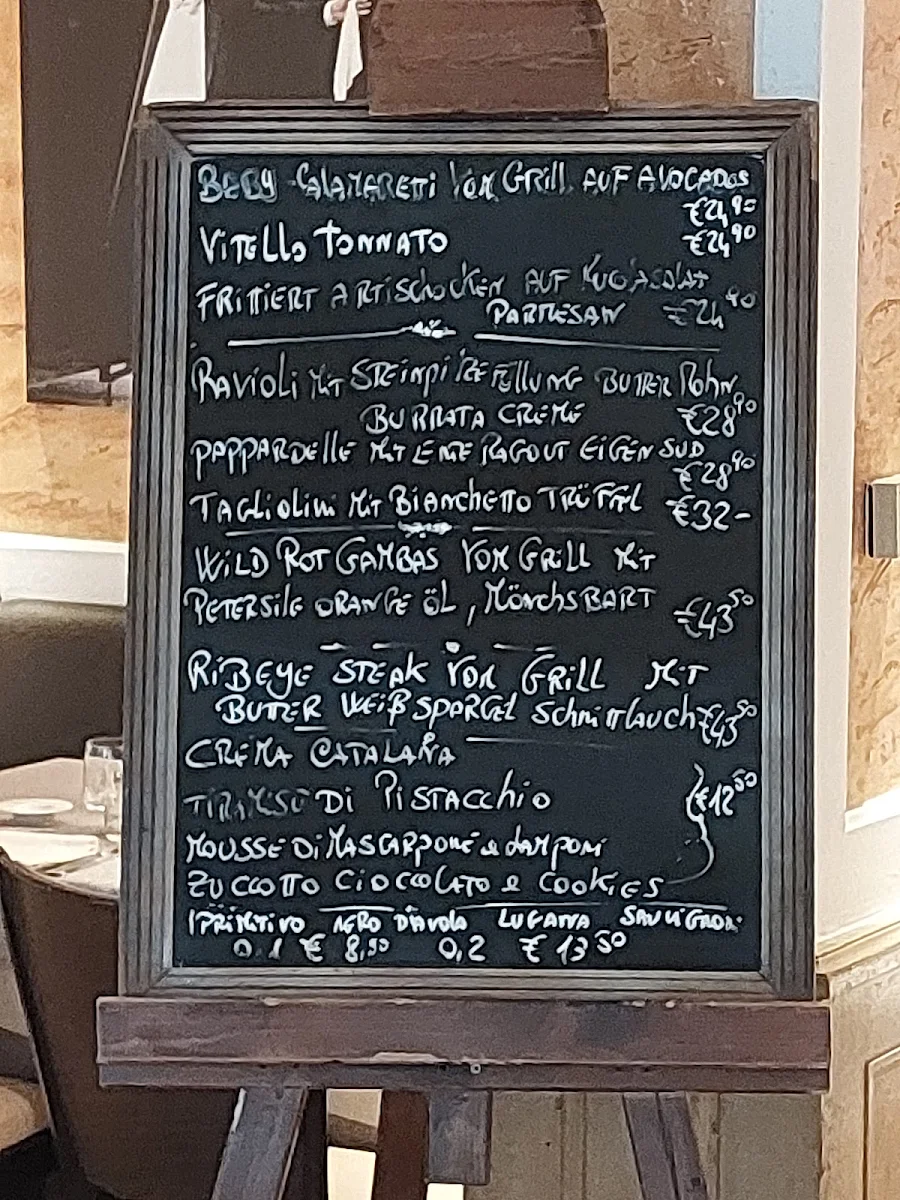 BABY CALAMARETTI VOM GRILL AUF AVOCADOS
€24,90
VITELLO TONNATO €24,90
FRITTIERT ARTISCHOCKEN AUF
PARMESAN €24,90
RAVIOLI MIT STEINPILZE FÜLLUNG BUTTER MOHN
BURRATA CREME €28,90
PAPPARDELLE MIT ENTE RAGOUT EIGEN SUD
€28,90
TAGLIOLINI MIT BIANCHETTO TRÜFFEL €32-
WILD ROT GAMBAS VOM GRILL MIT
PETERSILE ORANGE ÖL, MÖNCHSBART €43,50
RIBEYE STEAK VOM GRILL MIT
BUTTER WEIß SPARGEL SCHNITTLAUCH €43,50
CREMA CATALANA
TIRAMISU DI PISTACCHIO €12,50
MOUSSE DI MASCARPONE e LAMPONI
ZUCCOTTO CIOCCOLATO e COOKIES
PRIMITIVO NERO D'AVOLA LUGANA SAUVIGNON
0,1 € 8,50 0,2 € 13,50